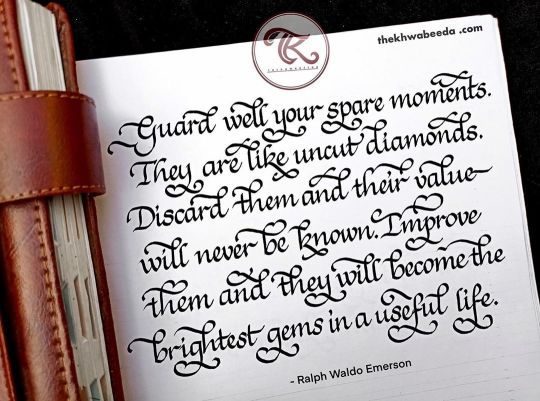 thekhwabeeda .com
TK
Guard well your spare moments.
They are like uncut diamonds.
Discard them and their value
will never be known. Improve
them and they will become the
brightest gems in a useful life.
- Ralph Waldo Emerson